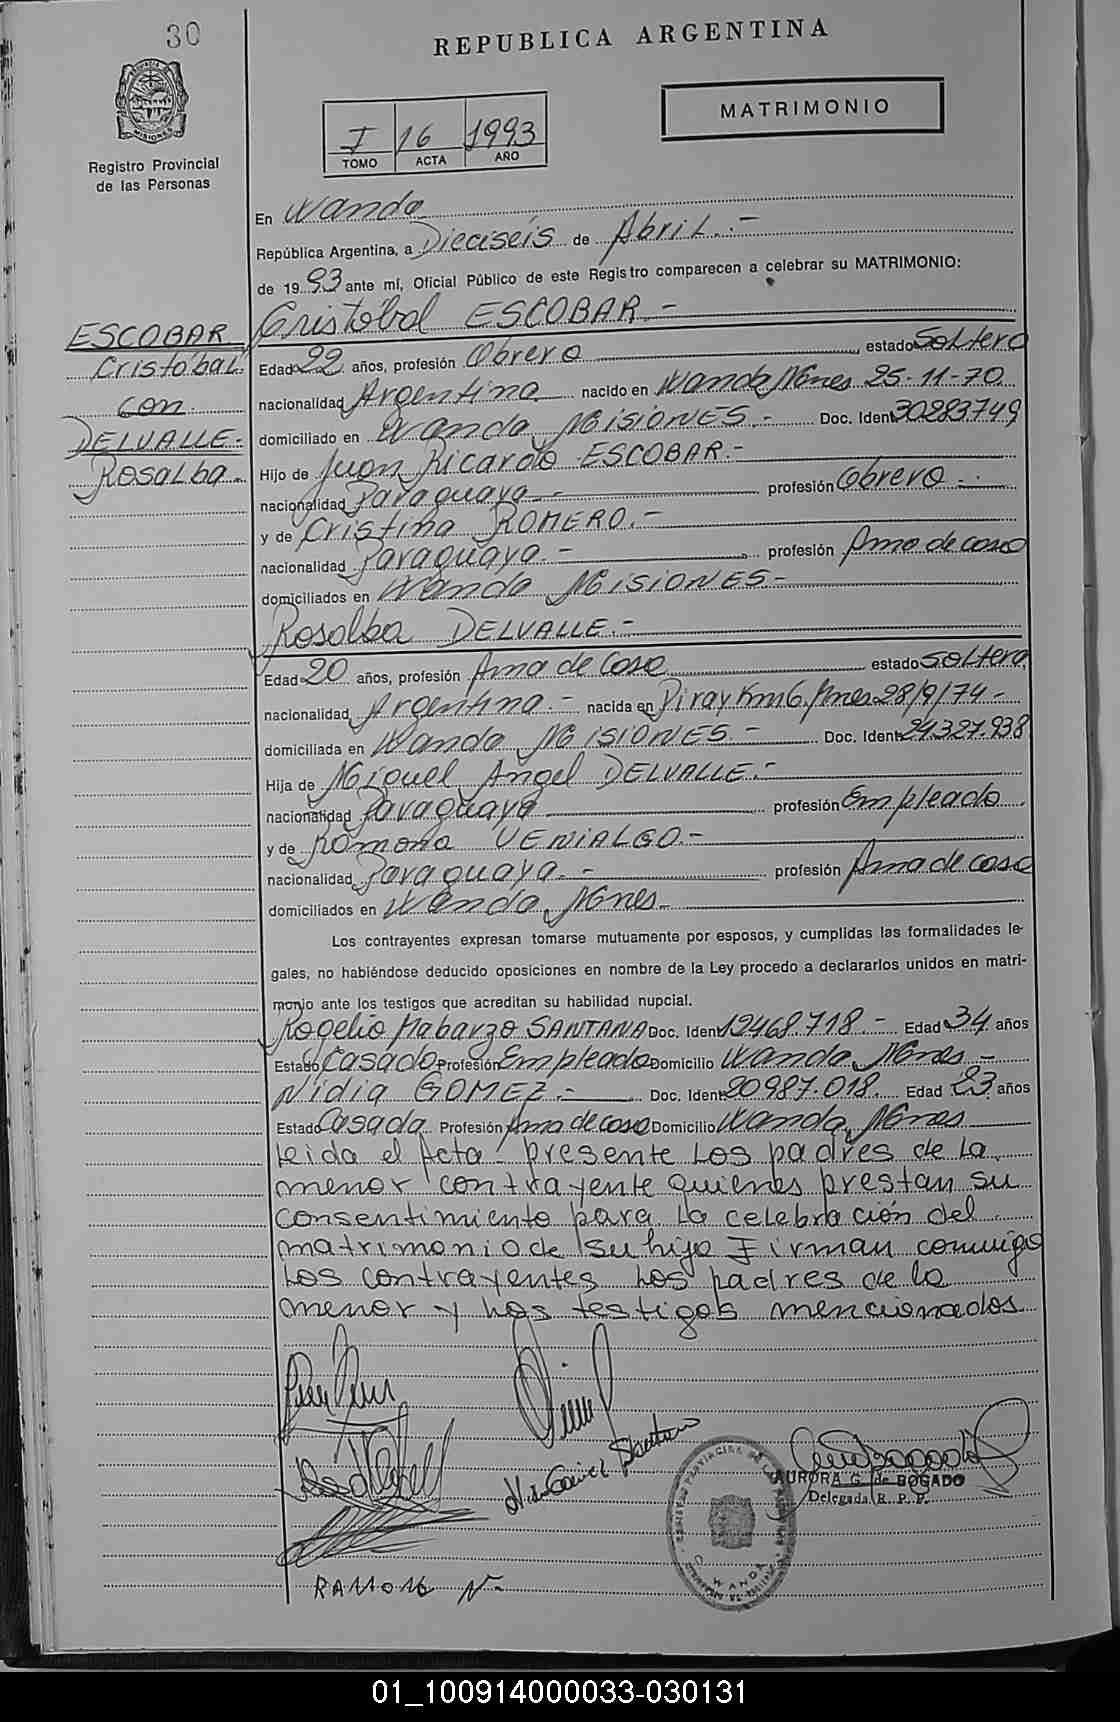 30
REPUBLICA ARGENTINA
Registro Provincial
de las Personas
MATRIMONIO
I 16 1993
TOMO ACTA AÑO
En Wanda
República Argentina, a Dieciseis de Abril.-
de 1993 ante mí, Oficial Público de este Registro comparecen a celebrar su MATRIMONIO:
ESCOBAR
Cristóbal
con
DELVALLE-
Rosalba
Cristóbal ESCOBAR.-
Edad 22 años, profesión Obrero estado Soltero
nacionalidad Argentina nacido en Wanda Mnes 25-11-70
domiciliado en Wanda MISIONES.- Doc. Ident 30283749
Hijo de Juan Ricardo ESCOBAR.-
nacionalidad Paraguaya.- profesión Obrero.-
y de Cristina ROMERO.-
nacionalidad Paraguaya.- profesión Ama de casa
domiciliados en Wanda MISIONES-
Rosalba DELVALLE.-
Edad 20 años, profesión Ama de Casa estado Soltera
nacionalidad Argentina.- nacida en Piray Km 6. Mnes 28/9/74-
domiciliada en Wanda MISIONES.- Doc. Ident 24.327.938
Hija de Miguel Angel DELVALLE.-
nacionalidad Paraguaya profesión Empleado
y de Ramona VENIALGO.-
nacionalidad Paraguaya.- profesión Ama de casa
domiciliados en Wanda, Mnes-
Los contrayentes expresan tomarse mutuamente por esposos, y cumplidas las formalidades le-
gales, no habiéndose deducido oposiciones en nombre de la Ley procedo a declararlos unidos en matri-
monio ante los testigos que acreditan su habilidad nupcial.
Rogelio SANTANA Doc. Ident 12468718.- Edad 34 años
Estado Casado Profesión Empleado Domicilio Wanda, Mnes-
Nidia GOMEZ.- Doc. Ident 20987.018. Edad 23 años
Estado Casada Profesión Ama de casa Domicilio Wanda, Mnes
Leida el Acta presente Los padres de La
menor contrayente quienes prestan su
consentimiento para La celebración del
matrimonio de su hija Firman conmigo
Los contrayentes Los padres de la
menor y Los testigos mencionados
AURORA G. de BOGADO
Delegada R. P. P.
WANDA
01_100914000033-030131